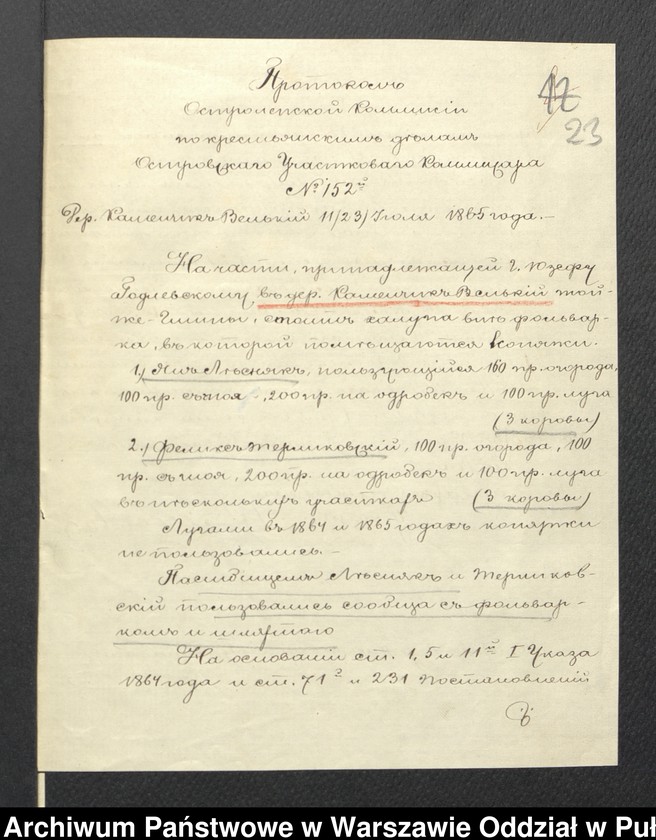 Протоколъ
17
23
Остроленской Коммисіи
по крестьянскимъ дѣламъ
Островскаго Участковаго Коммисара
№ 152й
Дер. Каменчикъ Велькій 11/23/ Іюля 1865 года.-
На части, принадлежащей г. Юзефу
Годлевскому, въ дер. Каменчикъ Велькій той-
же-Гмины, стоитъ халупа внѣ фольвар-
ка, въ которой помѣщаются копяжи.
1) Янъ Лѣснякъ, пользующійся 160 пр. огорода,
100 пр. сѣноя, 200 пр. на одробекъ и 100 пр. луга
(3 коровы)
2.) Феликсъ Жермиковскій, 100 пр. огорода, 100
пр. сѣноя, 200 пр. на одробекъ и 100 пр. луга
въ нѣсколькихъ участкахъ (3 коровы)
Лугами въ 1864 и 1865 годахъ копяжки
не пользовались.-
Пастбищемъ Лѣснякъ и Жермиков-
скій пользовались сообща съ фольвар-
комъ и шляхтою
На основаніи ст. 1, 5 и 11й I Указа
1864 года и ст. 71 и 231 Постановленій